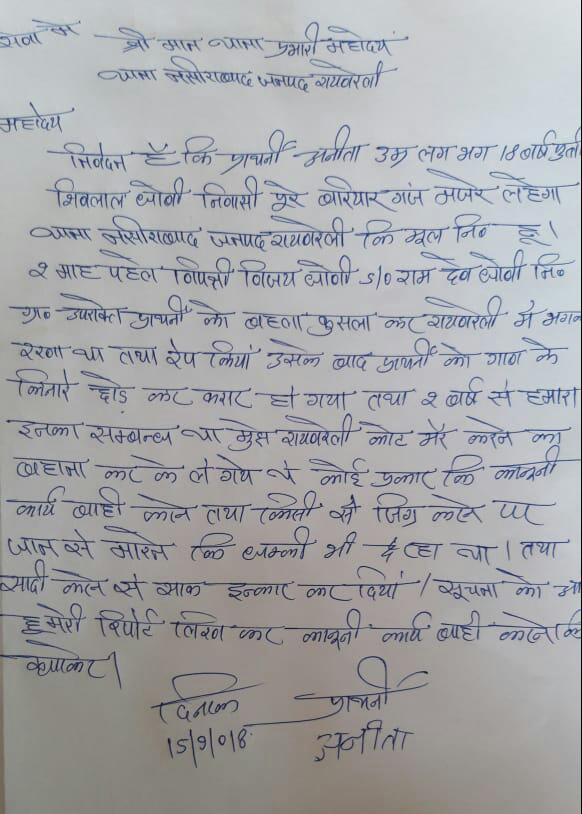 सेवा मे
श्री मान थाना प्रभारी महोदय
थाना नसीराबाद जनपद रायबरेली
महोदय
निवेदन है कि प्राथनी अनीता उम्र लग भग 18 बर्ष पुत्री
शिवलाल धोबी निवासी पूरे बरियार गंज मजरे लहेगा
थाना नसीराबाद जनपद रायबरेली कि मूल नि० हू।
2 माह पहेल विपक्षी विजय धोबी S/o राम देव धोबी नि०
ग्रा० उपरोक्त प्राथनी को बहला फुसला कर रायबरेली मे
रखा था तथा रेप किया उसके बाद प्राथनी को गाव के
किनारे छोड़ कर फरार हो गया तथा 2 बर्ष से हमारा
इनका सम्बन्ध था मुझे रायबरेली कोट मैरे करने का
बहाना कर के ले गये थे कोई प्रकार कि कानूनी
कार्य बाही करने तथा किसी से जिग्र करने पर
जान से मारने कि धमकी भी दे रहा था। तथा
सादी करने से साफ इन्कार कर दिया। सूचना को
हू मेरी रिपोर्ट लिख कर कानूनी कार्य बाही करने कि
दिनाक प्राथनी
15/9/018 अनीता